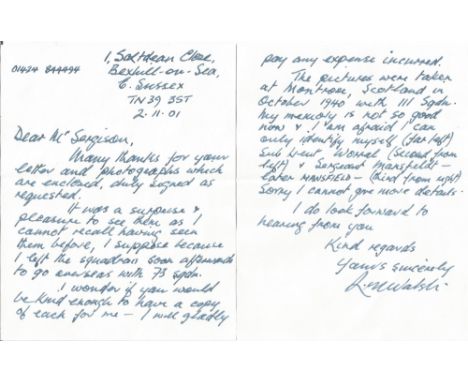 1, Saltdean Close,
01424 844494
Bexhill-on-Sea,
E. Sussex
TN39 3ST
2.11.01
Dear Mr Sergison,
Many thanks for your
letter and photographs which
are enclosed, duly signed as
requested.
It was a surprise &
pleasure to see them as I
cannot recall having seen
them before, I suppose because
I left the squadron soon afterwards
to go overseas with 73 sqdn.
I wonder if you would
be kind enough to have a copy
of each for me – I will gladly
pay any expense incurred.
The pictures were taken
at Montrose, Scotland in
October 1940 with 111 Sqdn.
My memory is not so good
now & I am afraid I can
only identify myself (far left)
Sub Lieut. (Second from
left) & Sergeant Mansfield –
later MANSFIELD – (third from right)
Sorry I cannot give more details.
I do look forward to
hearing from you
Kind regards
Yours sincerely
R.M Walsh.